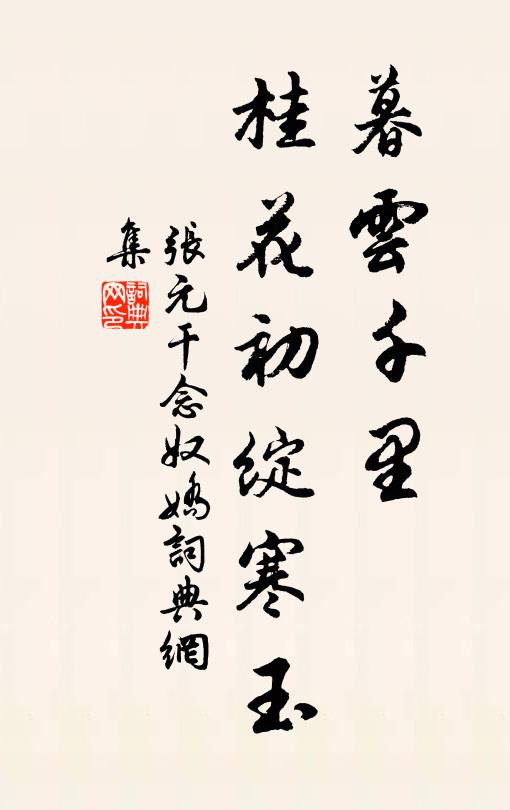 暮雲千里
桂花初綻寒玉
張元干念奴嬌詞典網
集
詞典
网印